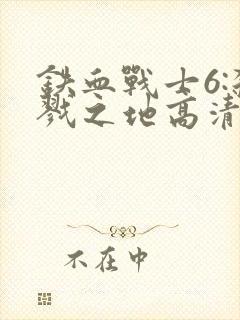 鉄血戰士6:殺
戮之地高清
不在中